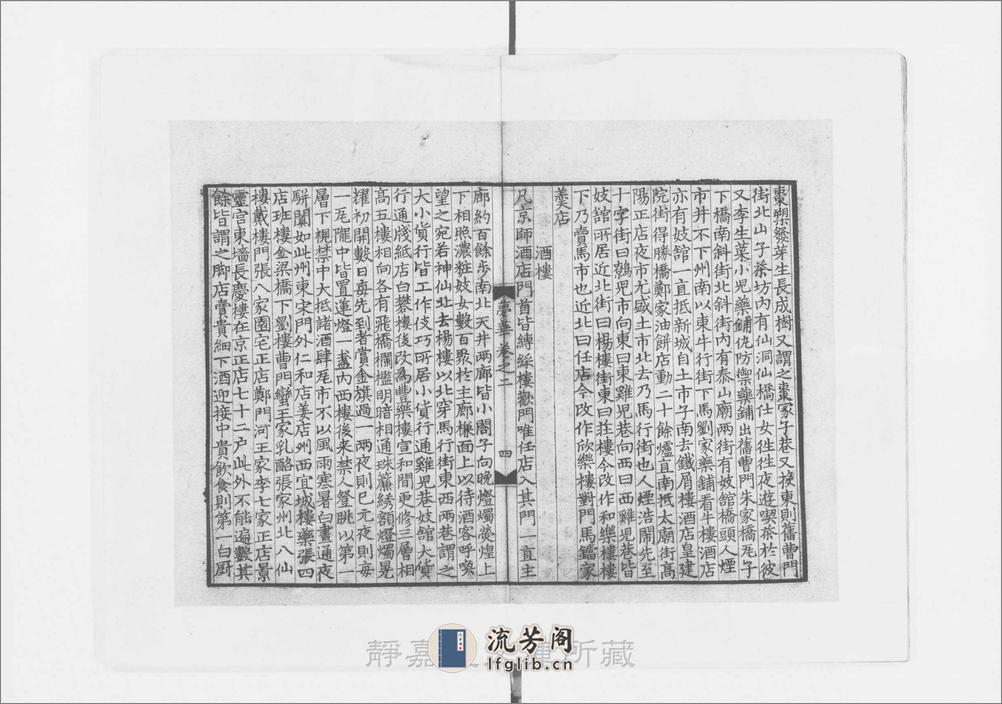 棗槊發芽生長成樹又謂之棗冢子巷又投東則舊曹門
街北山子茶坊內有仙洞仙橋仕女徃徃夜遊喫茶於彼
又李生菜小兒藥鋪仇防禦藥鋪出舊曹門朱家橋瓦子
下橋南斜街北斜街內有泰山廟兩街有妓舘橋頭人煙
市井不下州南以東牛行街下馬劉家藥鋪看牛樓酒店
亦有妓舘一直抵新城自土市子南去鐵屑樓酒店皇建
院街得勝橋鄭家油餅店動二十餘爐直南抵太廟街高
陽正店夜市尤盛土市北去乃馬行街也人煙浩閙先至
十字街曰鵓兒市向東曰東雞兒巷向西曰西雞兒巷皆
妓舘所居近北街曰楊樓街東曰莊樓今改作和樂樓樓
下乃賣馬市也近北曰任店今改作欣樂樓對門馬鐺家
羹店
酒樓
凡京師酒店門首皆縛綵樓歡門唯任店入其門一直主
夢華卷之二
四
廊約百餘步南北天井兩廊皆小閤子向晚燈燭熒煌上
下相照濃糚妓女數百聚於主廊槏面上以待酒客呼喚
望之宛若神仙北去楊樓以北穿馬行街東西兩巷謂之
大小貨行皆工作伎巧所居小貨行通雞兒巷妓舘大貨
行通牋紙店白礬樓後改為豐樂樓宣和間更修三層相
高五樓相向各有飛橋欄檻明暗相通珠簾綉額燈燭晃
耀初開數日每先到者賞金旗過一兩夜則已元夜則每
一瓦隴中皆置蓮燈一盞內西樓後來禁人登眺以第一
層下視禁中大抵諸酒肆瓦市不以風雨寒暑白晝通夜
駢闐如此州東宋門外仁和店姜店州西宜城樓藥張四
店班樓金梁橋下劉樓曹門蠻王家乳酪張家州北八仙
樓戴樓門張八家園宅正店鄭門河王家李七家正店景
靈宮東墻長慶樓在京正店七十二户此外不能遍數其
餘皆謂之脚店賣貴細下酒迎接中貴飲食則第一白厨
靜嘉
所藏
流芳阁
lfglib.cn